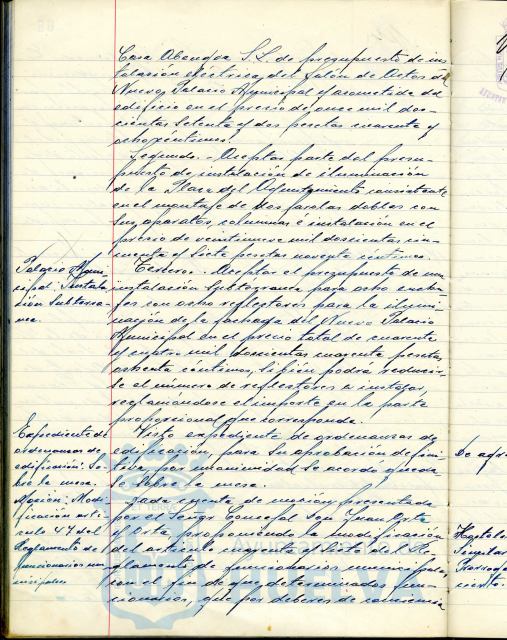 Casa Abengoa S.L. de presupuesto de ins
talación eléctrica del Salón de Actos del
Nuevo Palacio Municipal y acometida del
edificio en el precio de once mil dos-
cientas setenta y dos pesetas cuarenta y
ocho céntimos.
Segundo.- Aceptar parte del presu-
puesto de instalación de iluminación
de la Plaza del Ayuntamiento consistente
en el montaje de dos farolas dobles con
sus aparatos, columnas é instalación en el
precio de veintinueve mil doscientas cin-
cuenta y siete pesetas noventa céntimos.
Palacio Muni-
cipal: Instala-
ción Subterrá-
nea.
Tercero.- Aceptar el presupuesto de una
instalación subterránea para ocho
con ocho reflectores para la ilumi-
nación de la fachada del Nuevo Palacio
Municipal en el precio total de cuarenta
y cuatro mil doscientas cuarenta pesetas
ochenta céntimos, si bien podrá reducir-
se el número de reflectores a instalar,
reglamándose el importe en la parte
proporcional que corresponda.
Expediente de
ordenanzas de
edificación: So-
bre la mesa.
Visto expediente de ordenanzas de
edificación, para su aprobación defini-
tiva, por unanimidad se acordó quedase
sobre la mesa.
Moción: Modi-
ficación artí-
culo 47 del
Reglamento de
funcionarios mu-
nicipales
Dada cuenta de moción presentada
por el Señor Concejal Don Juan
proponiendo la modificación
del artículo cuarenta y siete del Re-
glamento de funcionarios municipales,
con el fin de que determinados fun-
cionarios, que por deberes de
AYUNTA
HUELVA